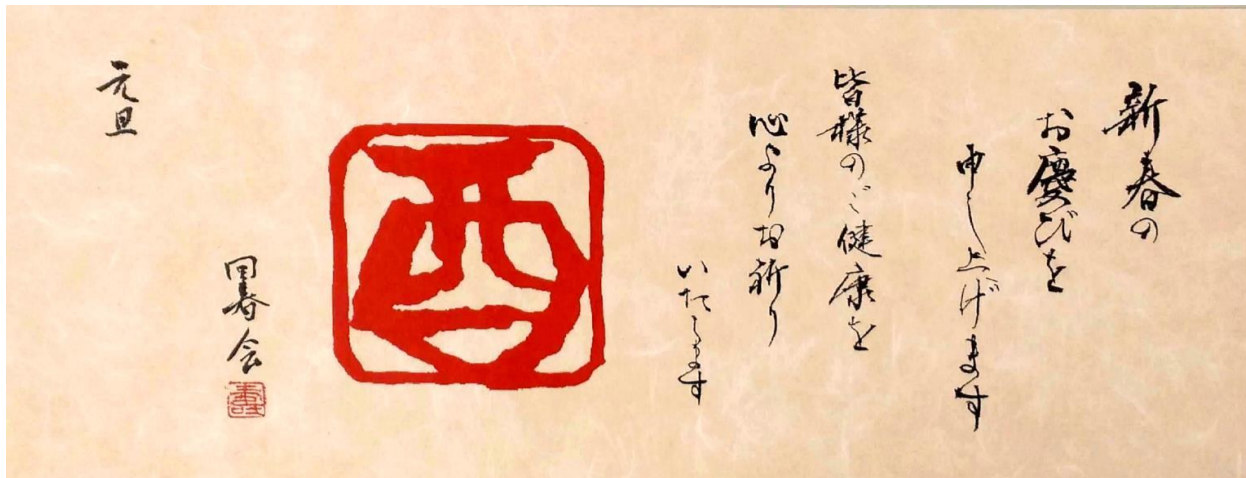 新春の
お慶びを
申し上げます
皆様のご健康を
心よりお祈り
いたします
酉
元旦
回春会